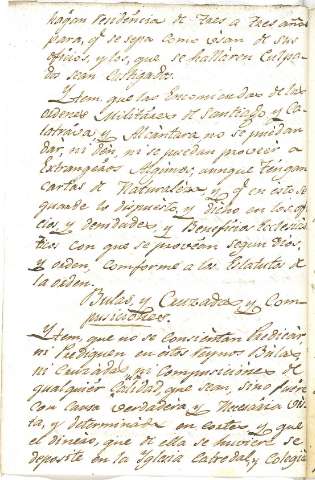 hagan rendencia de tres a tres años
para, q̃ se sepa como usan de sus
oficios, y los, que se hallaren Culpa-
do sean castigados.
Ytem, que las Encomiendas de las
ordenes Militares de Santiago, y Ca-
latrava, y Alcantara no se puedan
dár, ni dén, ni se puedan proveér a
Extrangeros Algunos, aunque tengan
cartas de Naturaleza, y q̃ en esto se
guarde lo dispuesto, y dicho en los ofi-
cios, y Dignidades, y Beneficios Eclesias-
ticos con que se provean segun Dios,
y orden, conforme a los Estatutos de
la orden.
Bulas, y Cruzadas, y Com-
pusiciones.
Ytem, que no se consientan Predicár,
ni Prediquen en estos Reynos Bulas,
ni Cruzada, ni Compusiciones de
qualquier Calidad que sean, sino fuere
con causa verdadera, y Necesaria vis-
ta, y determinada en cortes, y que
el dinero, que de ella se huviere se
deposite en la Yglesia Catredal, y Colegia